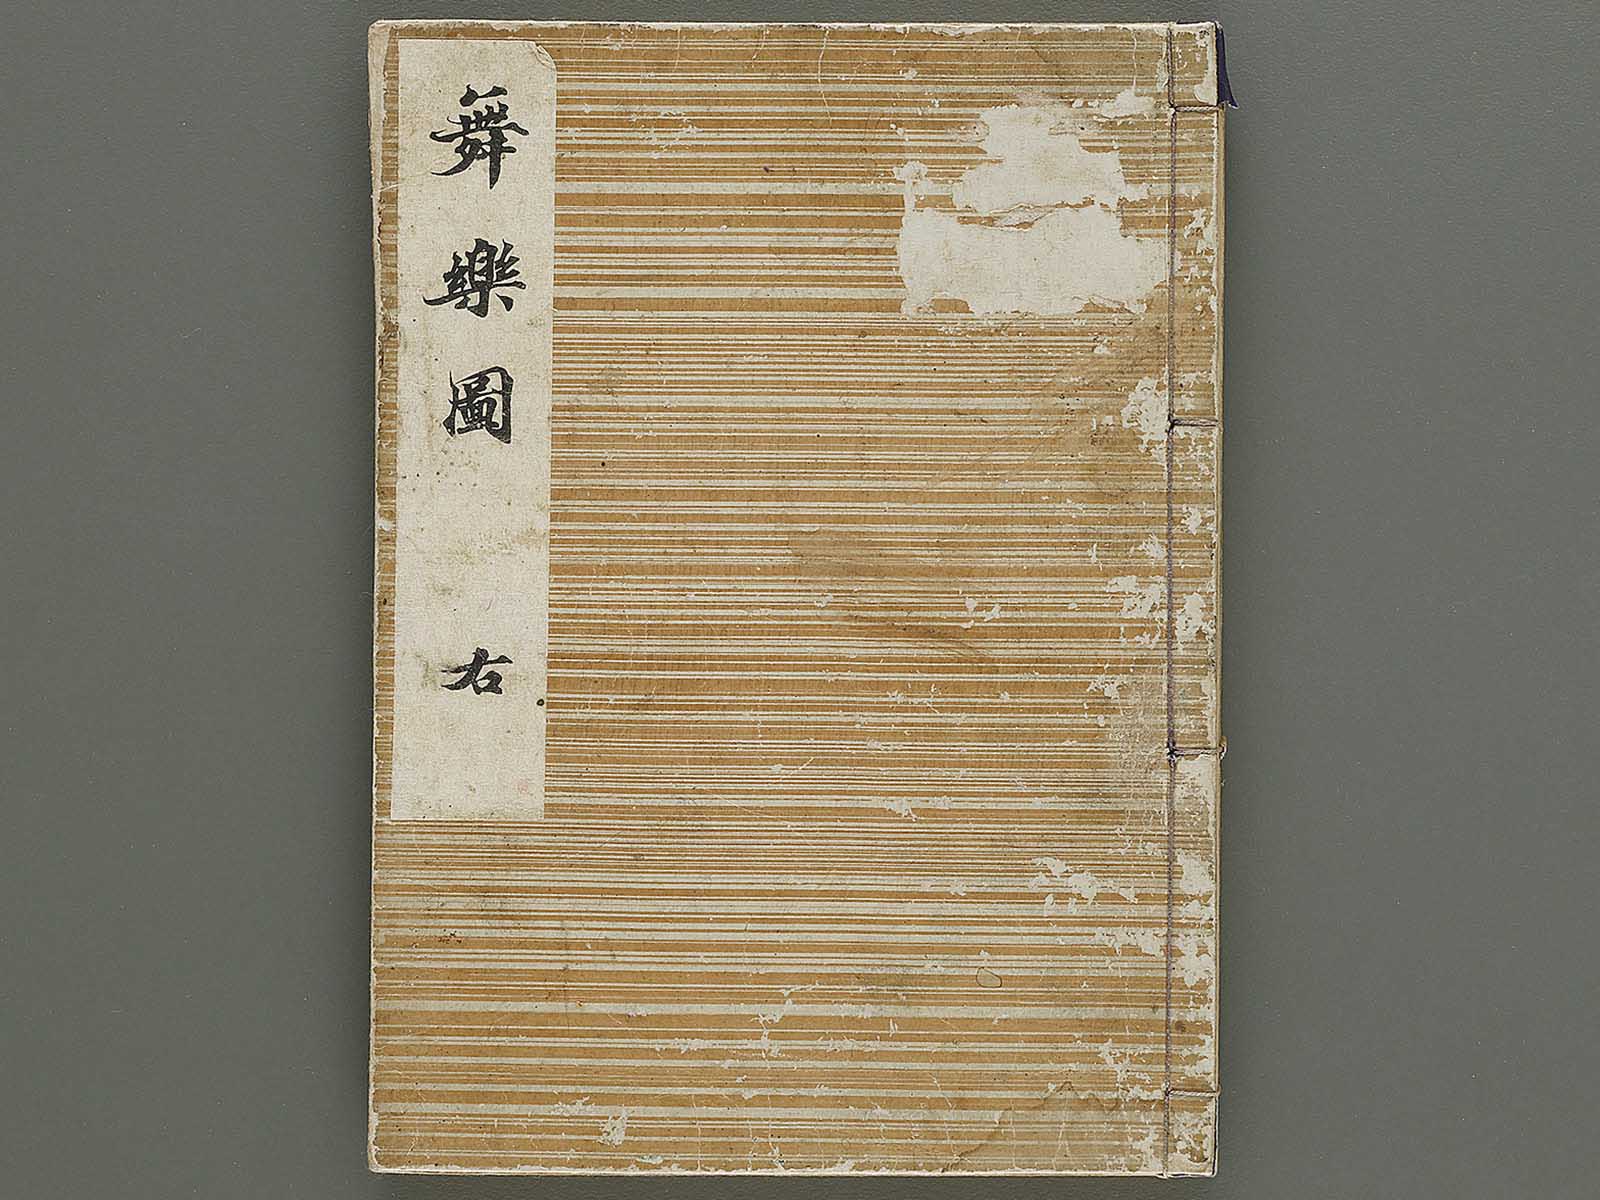 舞樂圖 右